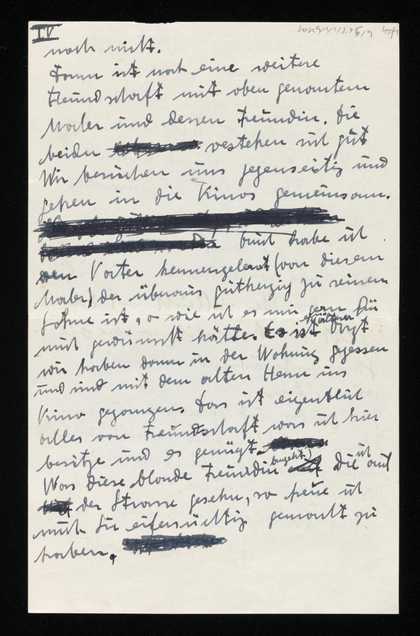 IV
noch nicht.
Dann ist noch eine weitere
Freundschaft mit oben genanntem
Maler und dessen Freundin. Die
beiden verstehen sich gut
Wir besuchen uns gegenseitig und
gehen in die Kinos gemeinsam.
Auch habe ich
den Vater kennengelernt (von diesem
Maler) der überaus gutherzig zu seinem
Sohne ist, so wie ich es mir gern für
mich gewünscht hätte. Dort
wir haben dann in der Wohnung gegessen
und sind mit dem alten Herrn ins
Kino gegangen. Das ist eigentlich
alles von Freundschaft was ich hier
besitze und es genügt.
Was diese blonde Freundin angeht, die ich auf
der Strasse gesehn, so freue ich
mich Sie eifersüchtig gemacht zu
haben.